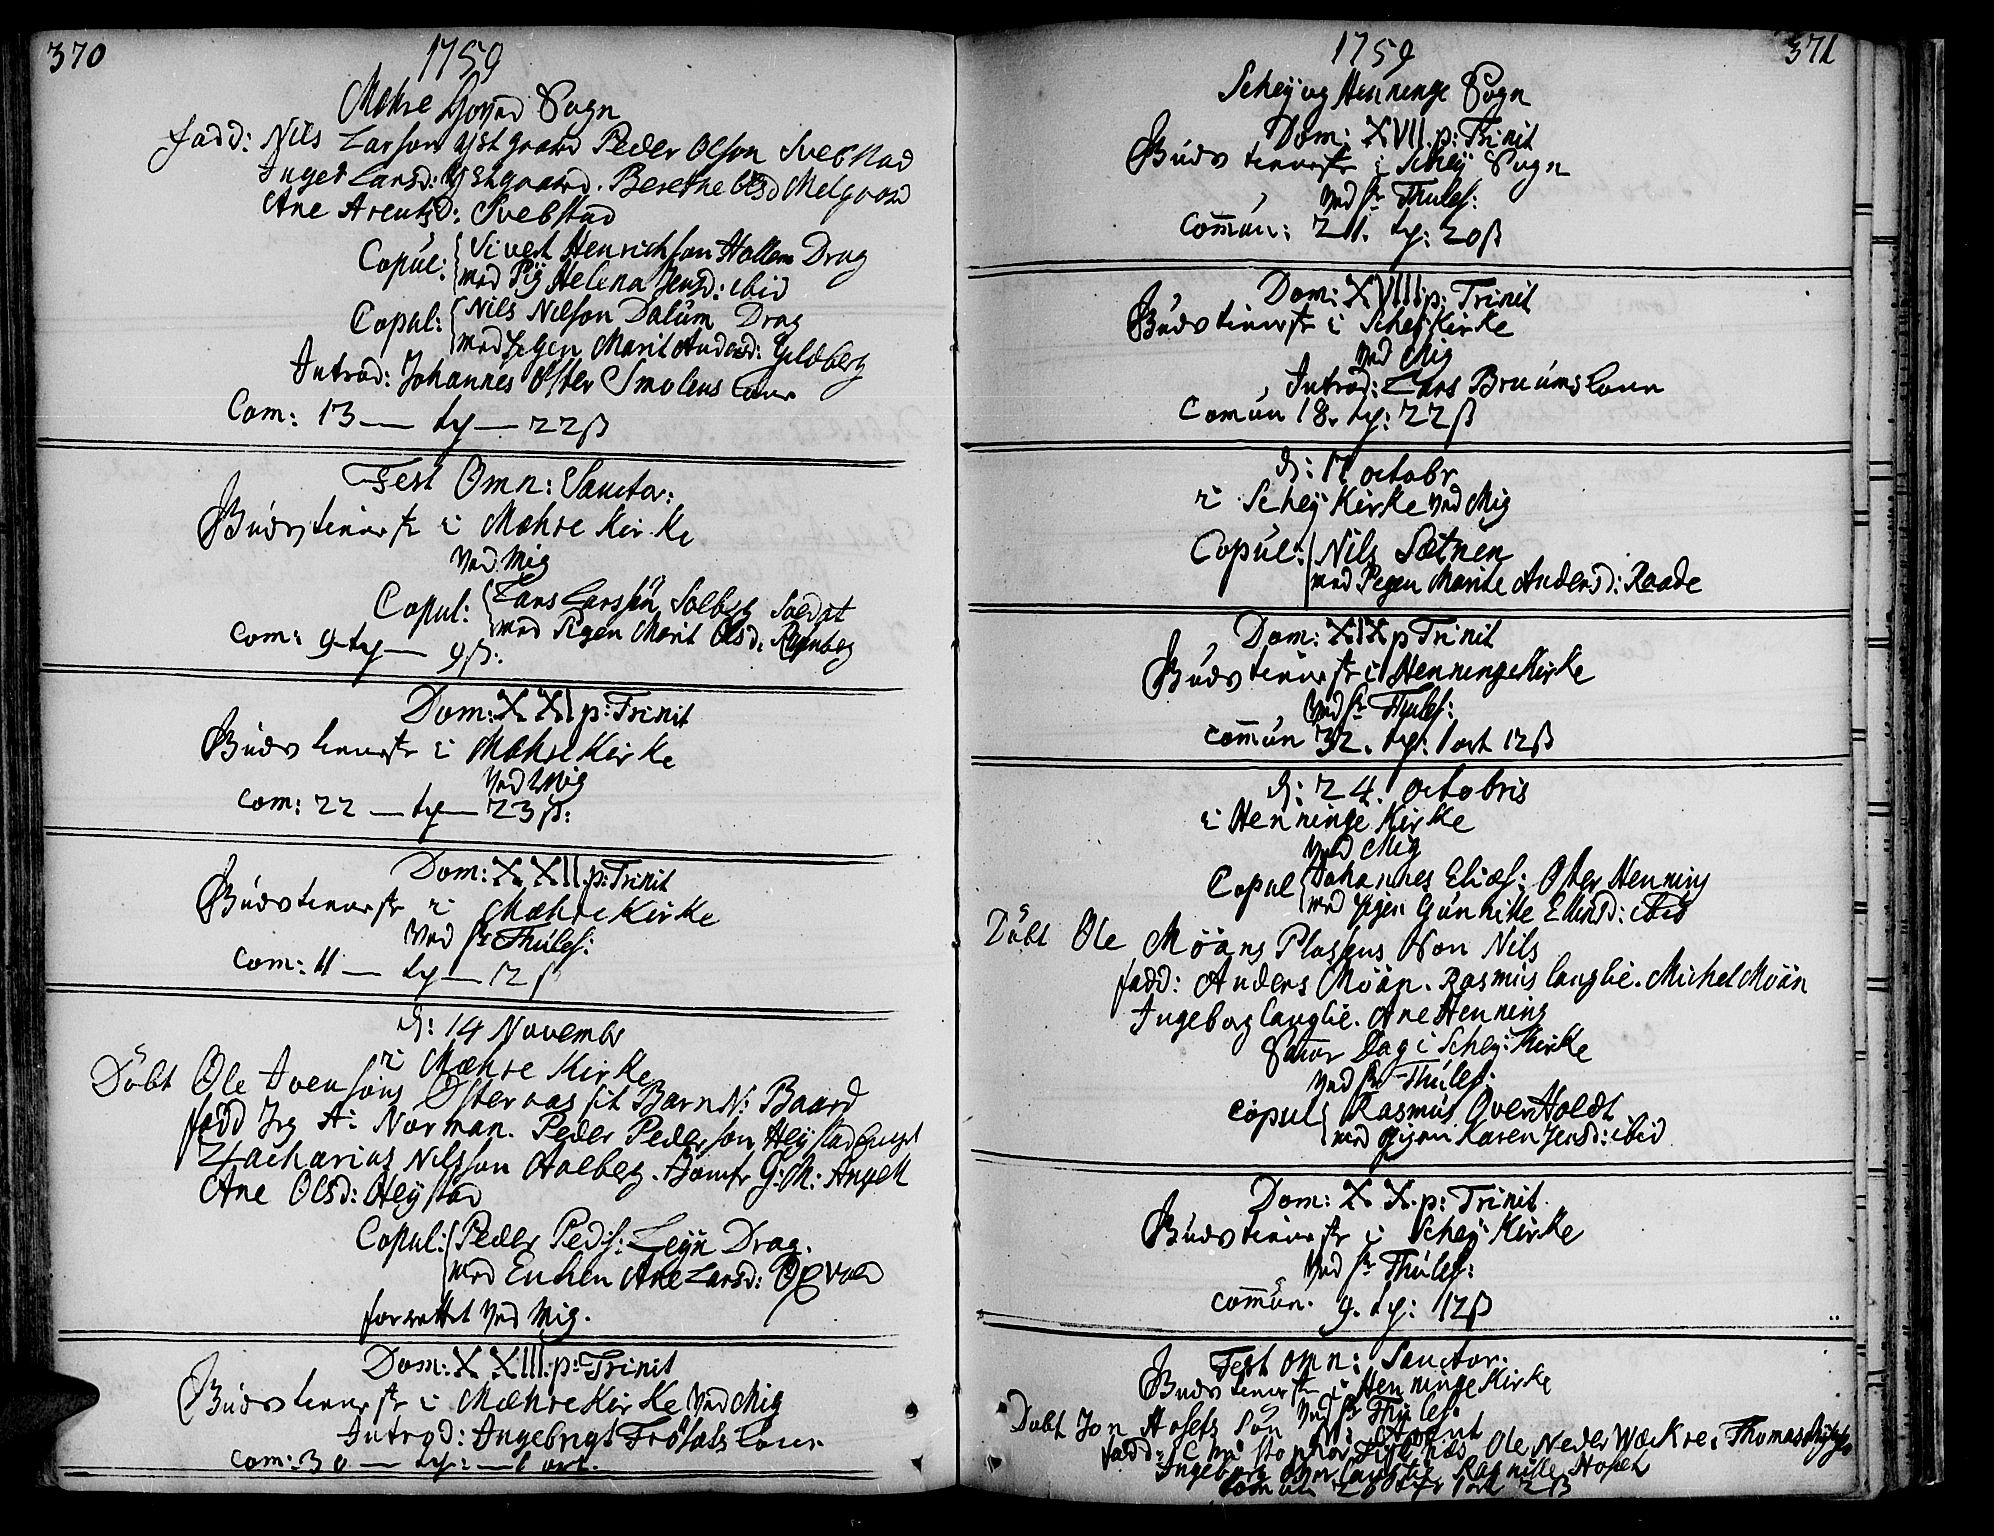 370
1759
Mæhre Sogn
fadd: Nils Larson Peder Olson Svebstad
Inger Larsd: Berethe Olsd
Ane Arentsd: Svebstad
Copul: Sivert Henrichson Hollem Drag
med Pig Helena Jensd: ibid
Copul: Nils Nilson Dalum Drag
med Pigen Marit Andersd: Gilberg
Introd: Johannes Øster Smolens Cone
Com: 13 — ty — 22ß
Fest Omn: Sanctor:
Gudstienniste i Mæhre Kirke
Ved Mig
Copul: Lars Larssön Solberg Soldat
med Pigen Marit Olsd:
Com: 9 ty — 9ß:
Dom: XXI p: Trinit
Gudstienniste i Mæhre Kirke
Ved Mig
Com: 22 — ty — 23ß:
Dom: XXII. p: Trinit
Gudstienniste i Mæhre Kirke
Ved Hr Thules:
Com: 11 — ty — 12ß
d: 14 Novembr
i Mæhre Kirke
Döbt Ole Ivensöns Østeraas sit Barn N: Baard
fadd Jeg A: Norman. Peder Pederson Heystad
Zacharias Nilsson Holberg. Jomfr G: M: Angell
Ane Olsd: Heystad
Copul: Peder Peds: Leÿn Drag.
med Enken Ane Larsd:
forrettet Ved Mig.
Dom: XXIII. p: Trinit
Gudstienniste i Mæhre Kirke Ved Mig
Introd: Ingebrigt Frösets Cone
Com: 30 — ty: — 1 ort.
371
1759
Scheÿ og Henninge Sogn
Dom: XVII. p: Trinit
Gudstienniste i Scheÿ Sogn
Ved Hr Thules:
Comun: 211. ty: 20ß
Dom: XVIII p: Trinit
Gudstienniste i Scheÿ Kirke
Ved Mig
Introd: Lars Bruums Cone
Comun 18. ty: 22ß
d: 17 octobr
i Scheÿ Kirke Ved Mig
Copul: Nils Sætnen
med Pegen Marite Andersd: Raade
Dom: XIX p Trinit
Gudstienniste i Henninge Kirke
Ved Hr Thules:
Comun 32. ty: 1 ort 12ß
d: 24. octobris
i Henninge Kirke
Ved Mig
Copul Johannes Elias: Øster Henning
med Pigen Gunhille Ellinsd: ibid
Döbt Ole Möäns Plasses Sön Nils
fadd: Anders Möän. Rasmus Langlie. Michel Möän
Ingebor Langlie. Ane Henning
Samme Dag i Scheÿ Kirke
Ved Hr Thules:
Copul Rasmus Over Holdt
med Pigen Karen Jensd: ibid
Dom: XX. p: Trinit.
Gudstienniste i Scheÿ Kirke
Ved Hr Thules:
Comun. 9. ty: 112ß
Fest Omn: Sanctor:
Gudstienniste i Henninge Kirke
Ved Hr Thules:
Döbt Jon Hosets Sön
fadd: Christopher Ole Neder Wækre. Thomas
Ingeborg Ragnille Hoset
ort 2ß